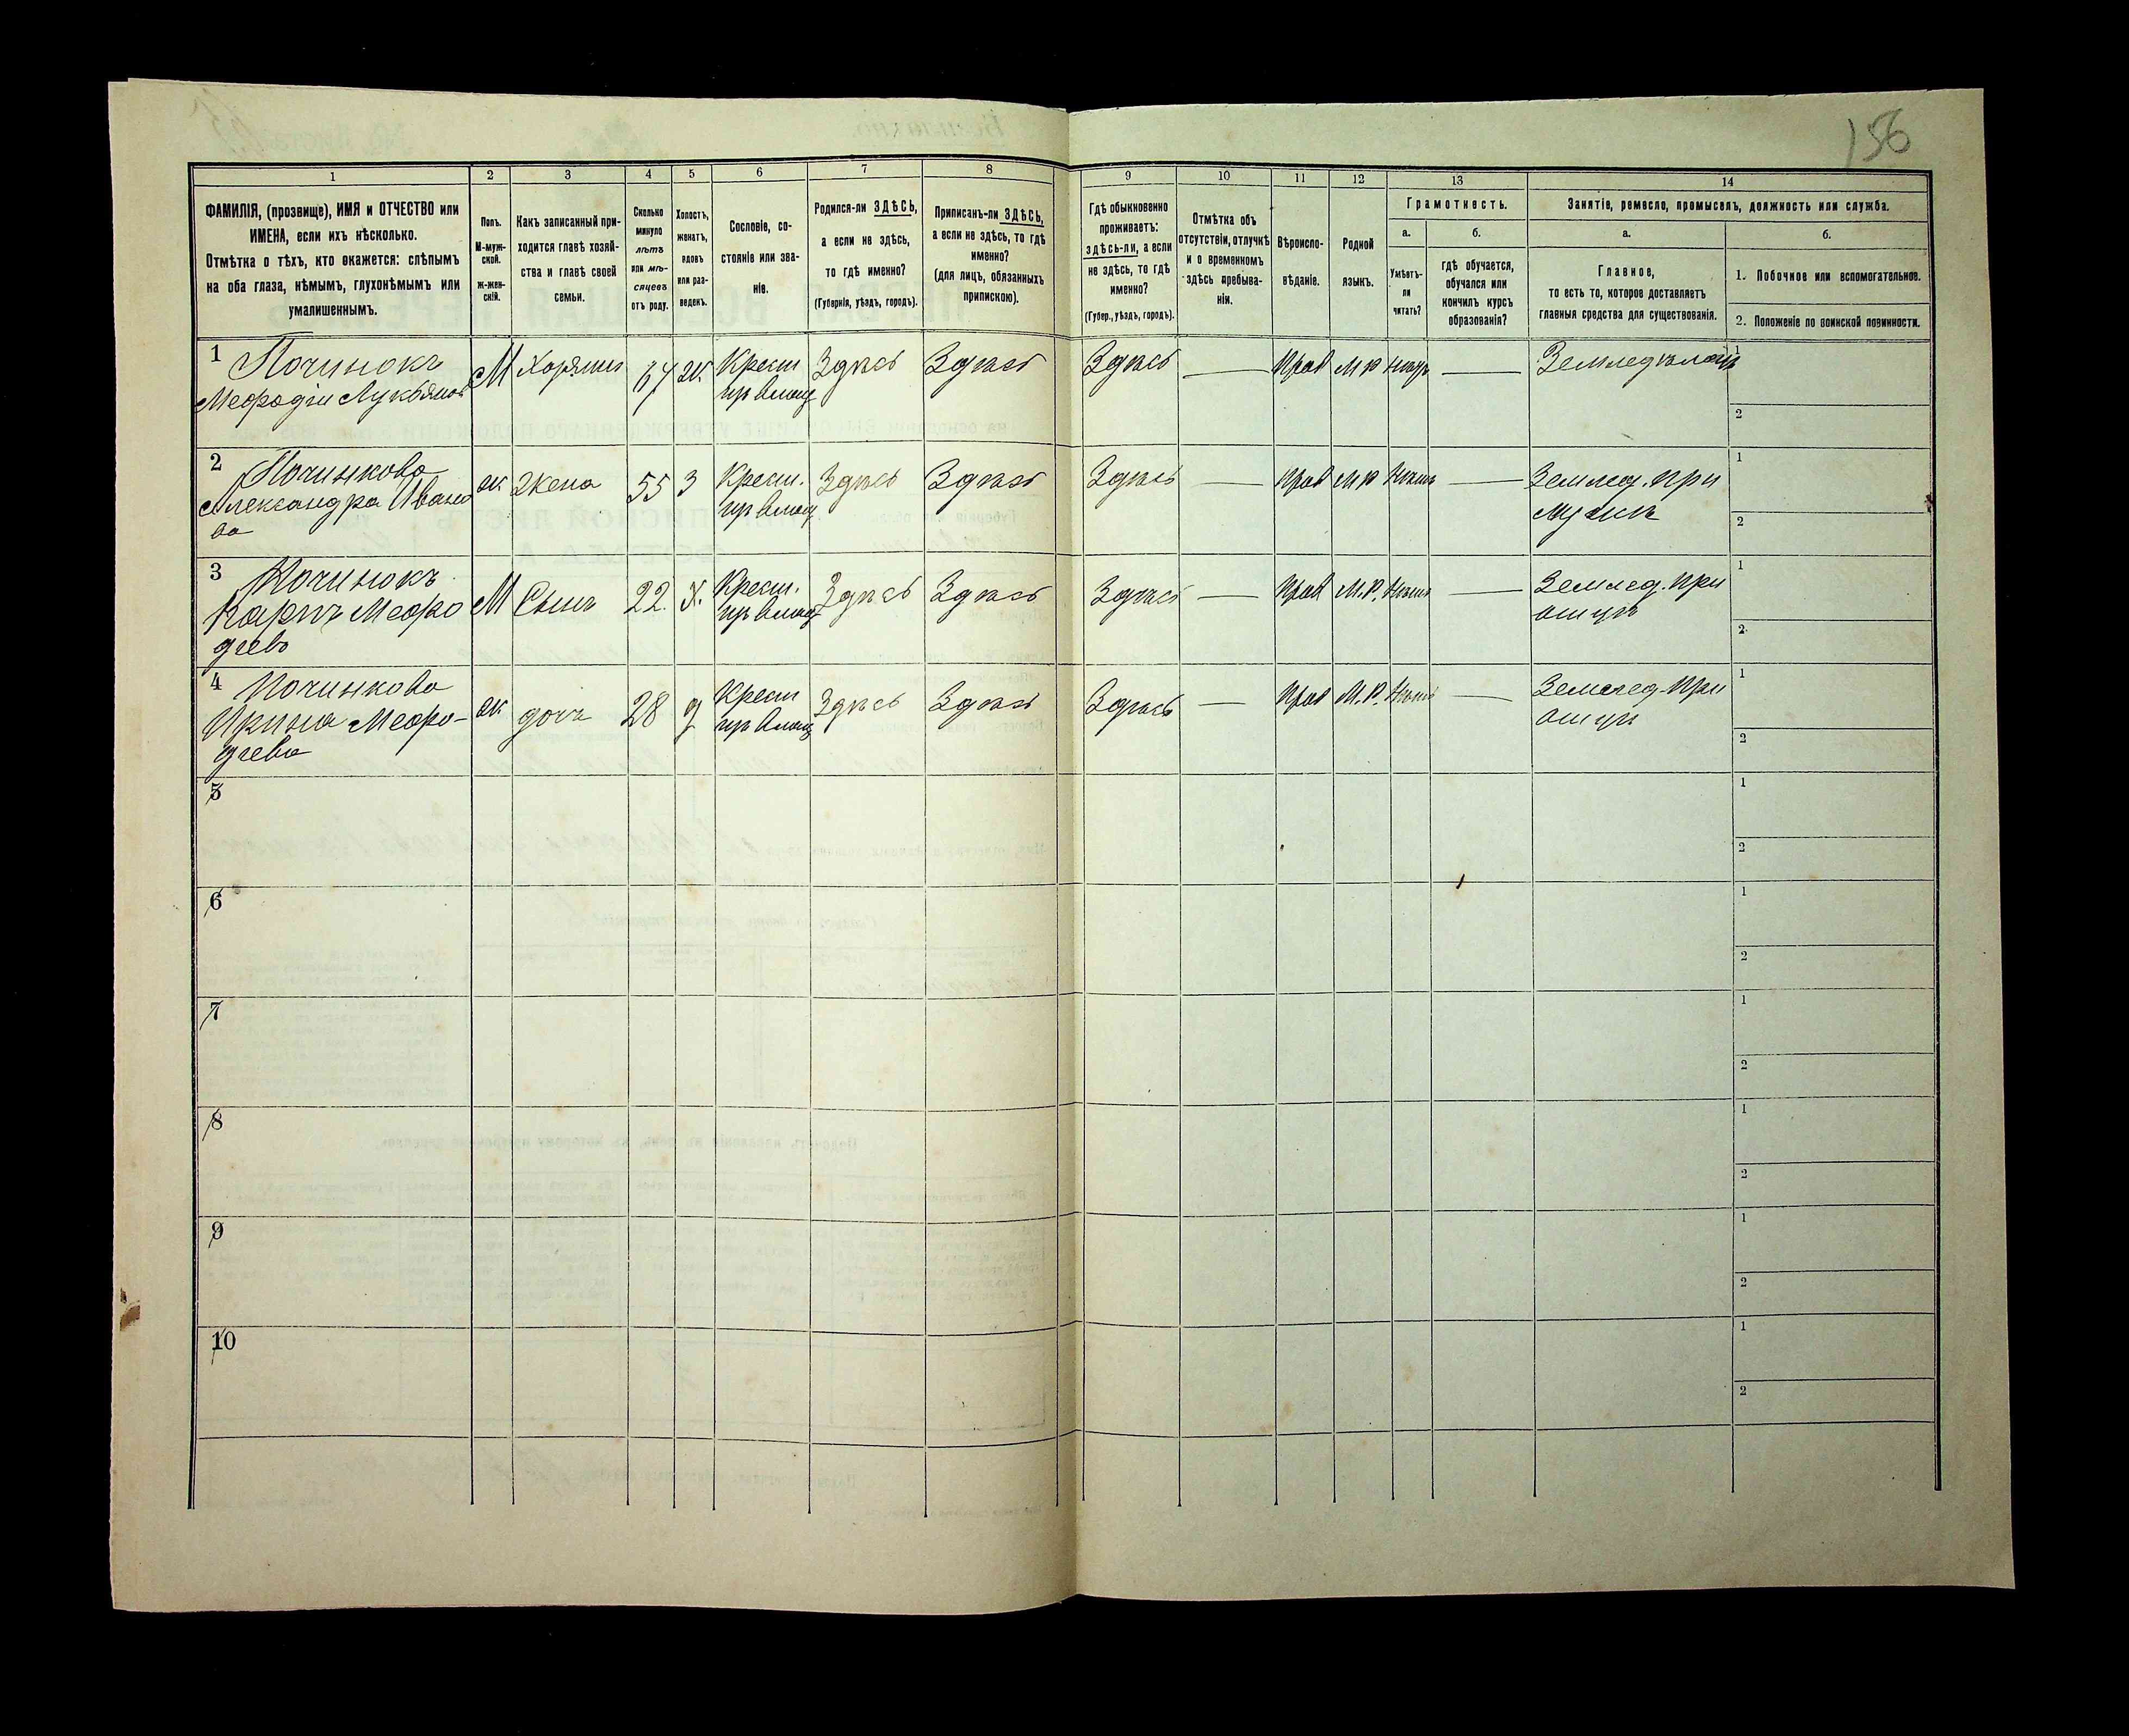 156
1 2 3 4 5 6 7 8 9 10 11 12 13 14
ФАМИЛІЯ, (прозвище), ИМЯ и ОТЧЕСТВО или
ИМЕНА, если ихъ нѣсколько.
Отмѣтка о тѣхъ, кто окажется: слѣпымъ
на оба глаза, нѣмымъ, глухонѣмымъ или
умалишеннымъ.
Полъ.
М-муж-
ской.
ж-жен-
скій.
Какъ записанный при-
ходится главѣ хозяй-
ства и главѣ своей
семьи.
Сколько
минуло
лѣтъ
или мѣ-
сяцевъ
отъ роду.
Холостъ,
женатъ,
вдовъ
или раз-
веденъ.
Сословіе, со-
стояніе или зва-
ніе.
Родился-ли ЗДѢСЬ,
а если не здѣсь,
то гдѣ именно?
(Губернія, уѣздъ, городъ).
Приписанъ-ли ЗДѢСЬ,
а если не здѣсь, то гдѣ
именно?
(для лицъ, обязанныхъ
припискою).
Гдѣ обыкновенно
проживаетъ:
здѣсь-ли, а если
не здѣсь, то гдѣ
именно?
(Губер., уѣздъ, городъ).
Отмѣтка объ
отсутствіи, отлучкѣ
и о временномъ
здѣсь пребыва-
ніи.
Вѣроиспо-
вѣданіе.
Родной
языкъ.
Грамотность.
а.
Умѣетъ-
ли
читать?
б.
гдѣ обучается,
обучался или
кончилъ курсъ
образованія?
Занятіе, ремесло, промыселъ, должность или служба.
а.
Главное,
то есть то, которое доставляетъ
главныя средства для существованія.
б.
1. Побочное или вспомогательное.
2. Положеніе по воинской повинности.
1 Починокъ
Мефодій Лукьяновъ
М Хозяинъ 64 Ж Крест
из владѣ
Здѣсь Здѣсь Здѣсь — Прав М Р —
1
2
2 Починкова
Александра Ивано
ва
ж Жена 55 З Крест.
из владѣ
Здѣсь Здѣсь Здѣсь — Прав М Р —
Землед. при
мужѣ
1
2
3 Починокъ
Карпъ Мефо
діевъ
М Сынъ 22. Х. Крест.
из владѣ
Здѣсь Здѣсь Здѣсь — Прав М.Р. —
Землед. при
отцѣ
1
2
4 Починкова
Ирина Мефо-
діева
ж дочь 28 д Крест
из владѣ
Здѣсь Здѣсь Здѣсь — Прав М.Р. —
Землед. при
отцѣ
1
2
5
1
2
6
1
2
7
1
2
8
1
2
9
1
2
10
1
2